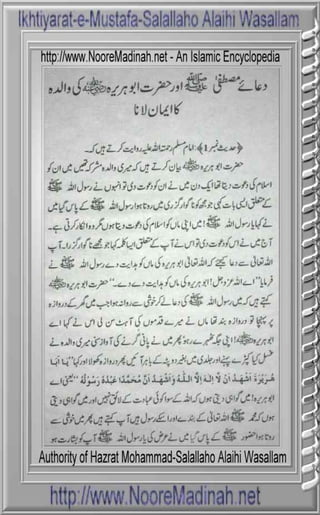 Ikhtiyarat-e-Mustafa-Salallaho Alaihi Wasallam
http://www.NooreMadinah.net - An Islamic Encyclopedia
دعائے مصطفیٰ ﷺ اور حضرت ابو ہریرہ ؓ کی والدہ
کا ایمان لانا
﴿حدیث نمبر 1﴾: امام مسلم رحمۃ اللہ علیہ روایت کرتے ہیں کہ۔
حضرت ابو ہریرہ ؓ بیان کرتے ہیں کہ میری والدہ مشرکہ تھیں میں ان کو
اسلام کی دعوت دیتا تھا ایک دن میں نے ان کو دعوت دی تو انہوں نے رسول اللہ ﷺ
کے متعلق ایسی بات کہی جو مجھ کو ناگوار گزری میں روتا ہوا رسول اللہ ﷺ کے پاس گیا میں
نے کہا یا رسول اللہ ﷺ! میں اپنی ماں کو اسلام کی دعوت دیتا ہوں مگر وہ انکار کرتی ہے۔
آج میں نے اس کو دعوت دی تو اس نے آپ کے متعلق ایسا کلمہ کہا جو مجھے ناگوار گزرا۔ آپ
اللہ تعالیٰ سے دعا کیجئے کہ اللہ تعالیٰ ابو ہریرہ کی ماں کو ہدایت دے رسول اللہ ﷺ نے
فرمایا "اے اللہ عزوجل! ابو ہریرہ کی ماں کو ہدایت دے دے۔" حضرت ابو ہریرہ ؓ
کہتے ہیں کہ میں رسول اللہ ﷺ کی دعا لے کر خوشی سے روانہ ہوا جب میں گھر کے دروازہ
پر پہنچا تو دروازہ بند تھا ماں نے میرے قدموں کی آہٹ سن لی اس نے کہا اے
ابو ہریرہ ؓ! اپنی جگہ ٹھہرے رہو پھر میں نے پانی گرنے کی آواز سنی میری والدہ نے
غسل کیا کپڑے پہنے اور جلدی میں بغیر دوپٹہ کے باہر آئیں پھر دروازہ کھولا اور کہا "يَا اَبَا
هُرَيْرَةَ اَشْهَدُ اَنْ لَا اِلٰهَ اِلَّا اللّٰهُ وَاَشْهَدُ اَنَّ مُحَمَّدًا عَبْدُهُ وَرَسُوْلُهُ" یعنی اے
ابو ہریرہ! میں گواہی دیتی ہوں کہ اللہ کے سوا کوئی عبادت کے لائق نہیں اور میں گواہی دیتی
ہوں کہ محمد ﷺ اللہ تعالیٰ کے بندے اور اس کے رسول ہیں آپ کہتے ہیں پھر میں خوشی سے
روتا ہوا حضور ﷺ کے پاس گیا میں نے عرض کی یا رسول اللہ ﷺ آپ کو بشارت ہو
Authority of Hazrat Mohammad-Salallaho Alaihi Wasallam
http://www.NooreMadinah.net